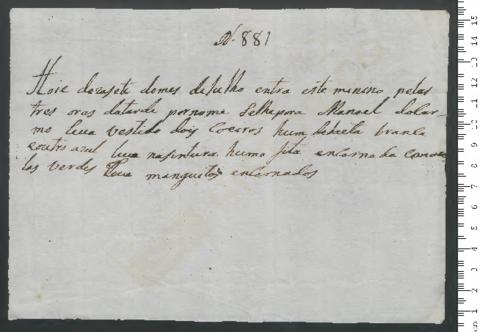 Nº 881
Hoie dezasete domes deJulho entra este menino pelas
tres oras datarde pornome Selhepora Manoel dolar
mo leva vestido dois Coeiros hum branca
eoutro azul leva nasintura huma fita encarnada Com
las verdes leva manguitos encarnados